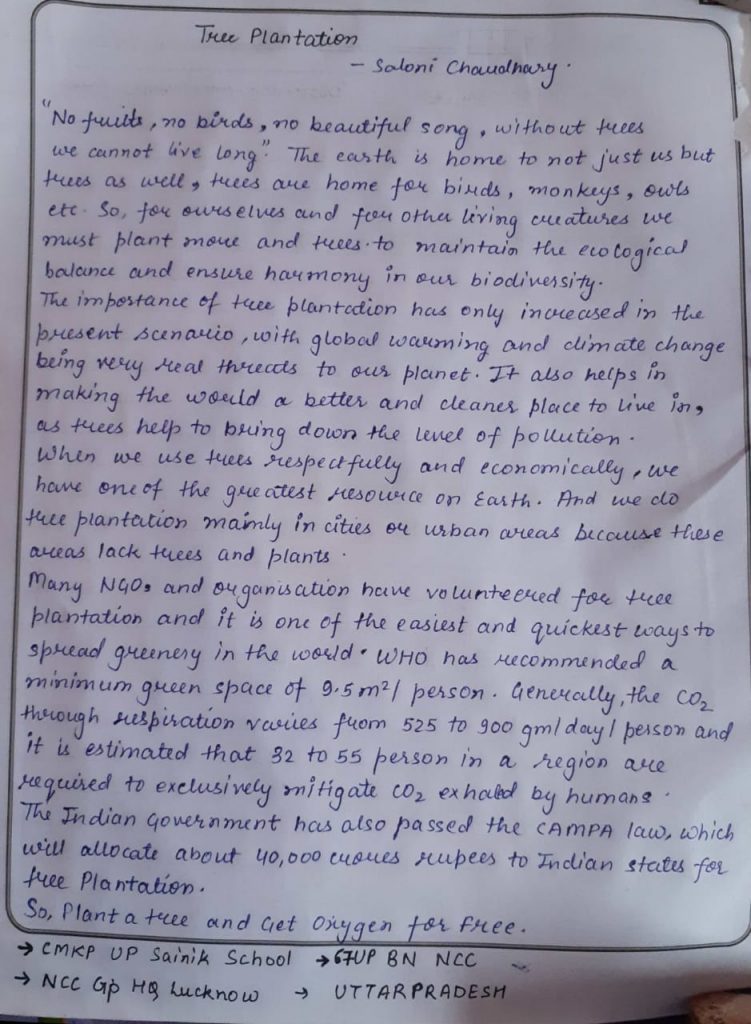 Tree Plantation
- Saloni Chaudhary.
"No fruits, no birds, no beautiful song, without trees
we cannot live long". The earth is home to not just us but
trees as well, trees are home for birds, monkeys, owls
etc. So, for ourselves and for other living creatures we
must plant more and trees. to maintain the ecological
balance and ensure harmony in our biodiversity.
The importance of tree plantation has only increased in the
present scenario, with global warming and climate change
being very real threats to our planet. It also helps in
making the would a better and cleaner place to live in,
as trees help to bring down the level of pollution.
When we use trees respectfully and economically, we
have one of the greatest resource on Earth. And we do
tree plantation mainly in cities or urban areas because these
areas lack trees and plants.
Many NGOs and organisation have volunteered for tree
plantation and it is one of the easiest and quickest ways to
spread greenery in the world. WHO has recommended a
minimum green space of 9.5 m²/ person. Generally, the CO₂
through respiration varies from 525 to 900 gm/day/ person and
it is estimated that 32 to 55 person in a region are
required to exclusively mitigate CO₂ exhaled by humans.
The Indian Government has also passed the CAMPA law, which
will allocate about 40,000 crores rupees to Indian states for
tree Plantation.
So, Plant a tree and Get Oxygen for free.
→ CMKP UP Sainik School → 67UP BN NCC
→ NCC Gp HQ Lucknow → UTTARPRADESH